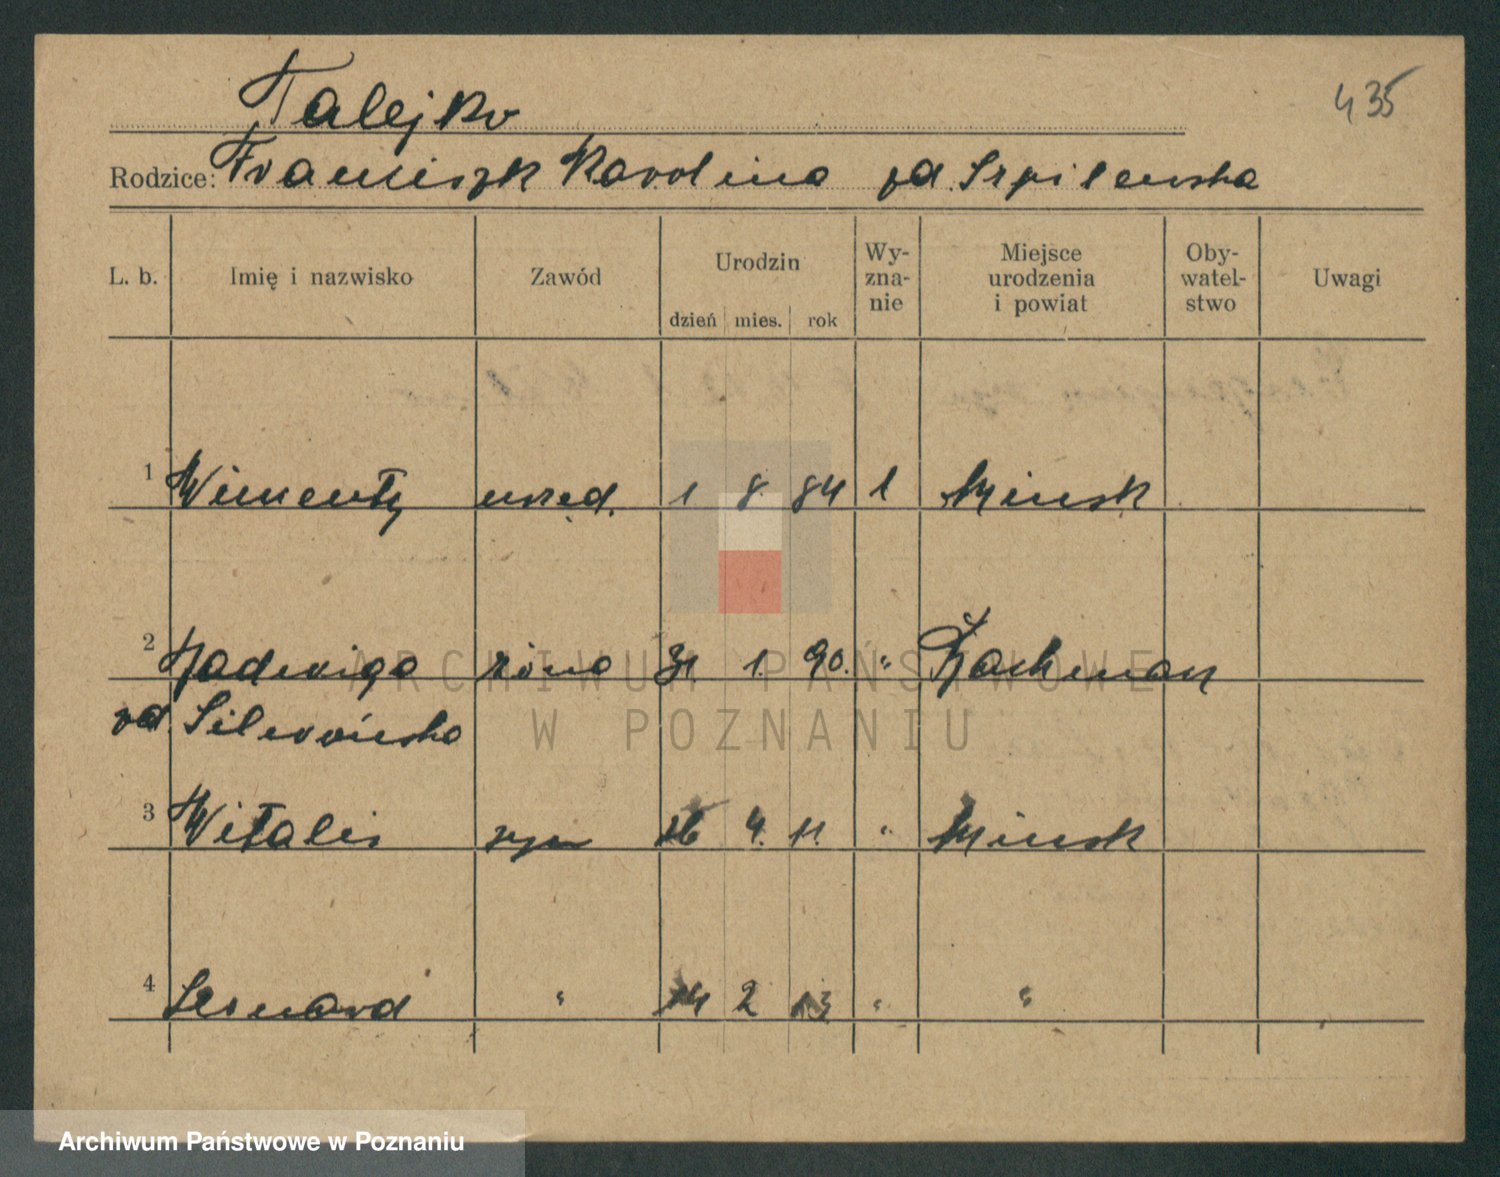 435
Talejko
Rodzice: Franciszk Karolina zd. Szpilewska
L. b. Imię i nazwisko Zawód Urodzin dzień mies. rok Wy-zna-nie Miejsce urodzenia i powiat Oby-watel-stwo Uwagi
1 Wincenty urzęd. 1 8. 84 1 Minsk
2 Jadwiga żona 31 1. 90. "
zd.
3 Witalis syn 26 4. 11. " Minsk
4 Leonard " 14 2 13 " "
ARCHIWUM PAŃSTWOWE
W POZNANIU
Archiwum Państwowe w Poznaniu